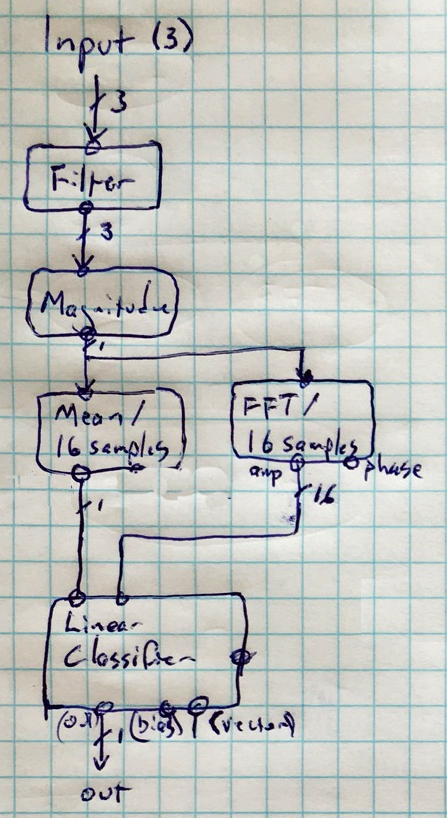 Input (3)
3
Filter
3
Magnitude
1
Mean/
16 samples
FFT/
16 samples
amp
phase
1
16
Linear
Classifier
(out)
1
(bias)
(vector)
out